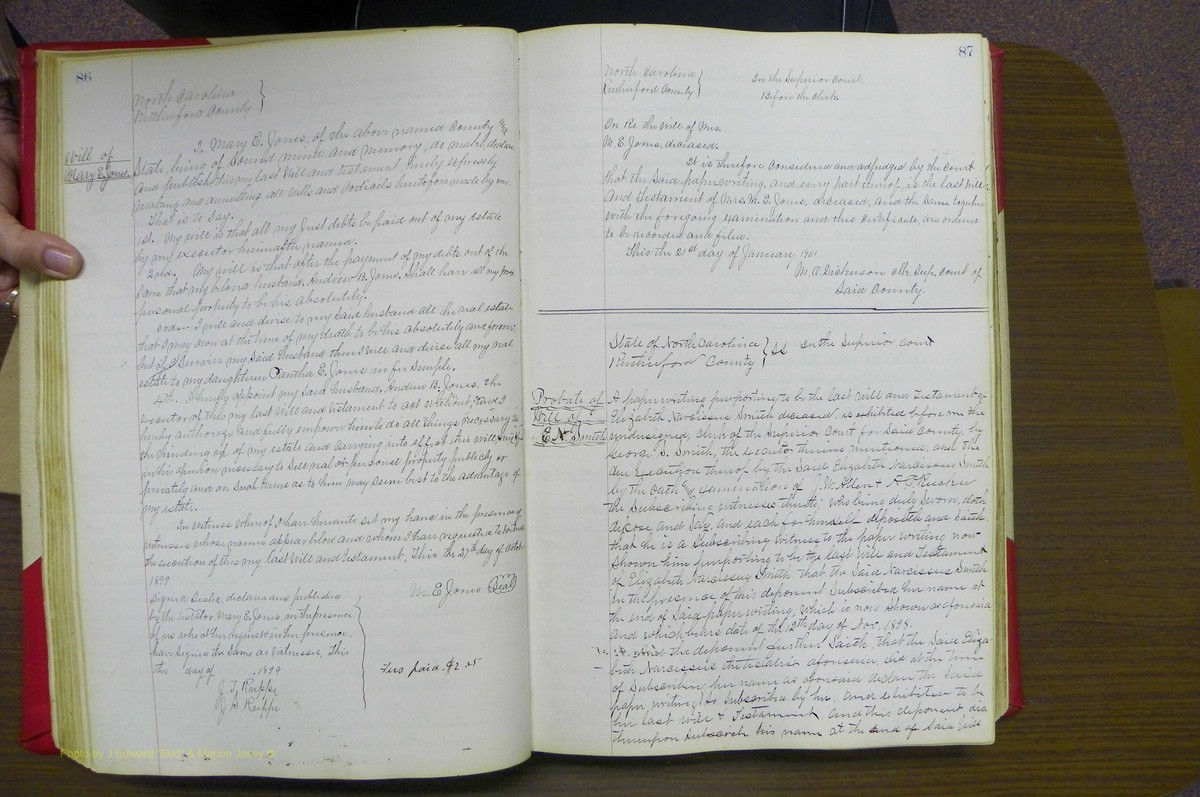 86
North Carolina
Rutherford County
Will of
Mary E. Jones.
I, Mary E. Jones, of the above named County and
State, being of sound mind and memory, do make, declare
and publish this my last Will and testament, hereby expressly
revoking and annulling all wills and codicils heretofore made by me
That is to say.
1st. My will is that all my Just debts be paid out of my estate
by my executor hereinafter named.
2nd. My will is that after the payment of my debts out of the
same that my beloved husband, Andrew B. Jones, shall have all my per
personal property to be his absolutely.
3rd. I will and devise to my said husband all the real estate
that I may own at the time of my death to be his absolutely and forever
but if I survive my said husband then I will and devise all my real
estate to my daughter in E. Jones in fee Semple.
4th. I hereby appoint my said husband, Andrew B. Jones, the
executor of this my last Will and testament to act without, and I
hereby authorize and fully empower him to do all things necessary in
the winding up of my estate and carrying into effect this will, and if
in his opinion necessary to sell real or personal property publicly or
privately and on such terms as to him may seem best to the advantage of
my estate.
In witness whereof, I have hereunto set my hand in the presence of
witnesses whose names appear below and whom I have requested to witness
the execution of this my last Will and testament, This the 27th day of October
1899
M. E. Jones (Seal)
Signed Sealed, declared and published
by the testator, Mary E. Jones, in the presence
of us who at her request and in her presence.
have signed the same as witnesses, This
the day of 1899
J. T. Reippe
J. B. Reippe
Fees paid $2.25
87
North Carolina
Rutherford County
In the Superior Court.
Before the Clerk.
In Re. the will of Mrs.
M. E. Jones, deceased.
It is therefore considered and adjudged by the Court
that the said paper writing, and every part thereof, is the last Will
and testament of Mrs. M. E. Jones, deceased, and the same together
with the foregoing examination and this certificate, are ordered
to be recorded and filed.
This the 21st day of January, 1901
M. O. Dickerson Clk. Sup. Court of
Said County.
State of North Carolina
Rutherford County
SS In the Superior Court
Probate of
Will of
E. N. Smith
A paper writing purporting to be the last will and Testament of
Elizabeth Narcissus Smith deceased, is exhibited before me the
undersigned, Clerk of the Superior Court for Said County, by
George S. Smith, the executor therein mentioned, and the
due execution thereof by the Said Elizabeth Narcissus Smith
by the Oath and examinations of J. W. Allen &
the Subscribing witnesses thereto; who being duly sworn, doth
depose and say, and each for himself deposeth and Saith,
that he is a Subscribing Witness to the paper writing now
Shown him purporting to be the last will and Testament
of Elizabeth Narcissus Smith that the Said Narcissus Smith
in the presence of this deponent Subscribed her name at
the end of Said paper writing, which is now Shown as aforesaid
and which bears date of the 12th day of Nov. 1898.
And the deponent further Saith, that the Said Eliza-
beth Narcissus the testatrix aforesaid, did at the time
of Subscribing her name as aforesaid declare the Said
paper writing So Subscribed by her, and exhibited to be
her last will & Testament and this deponent did
thereupon Subscribe his name at the end of Said Will
Photo by J Edward "Bud" & Marion Josey ©